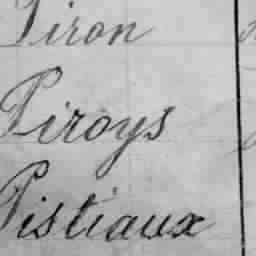 Piron
Piroys
Pistiaux